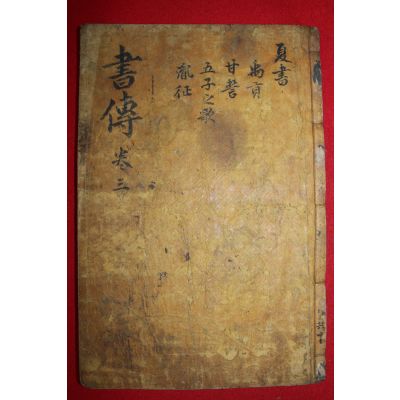 夏書
禹貢
甘誓
五子之歌
胤征
書傳 卷三